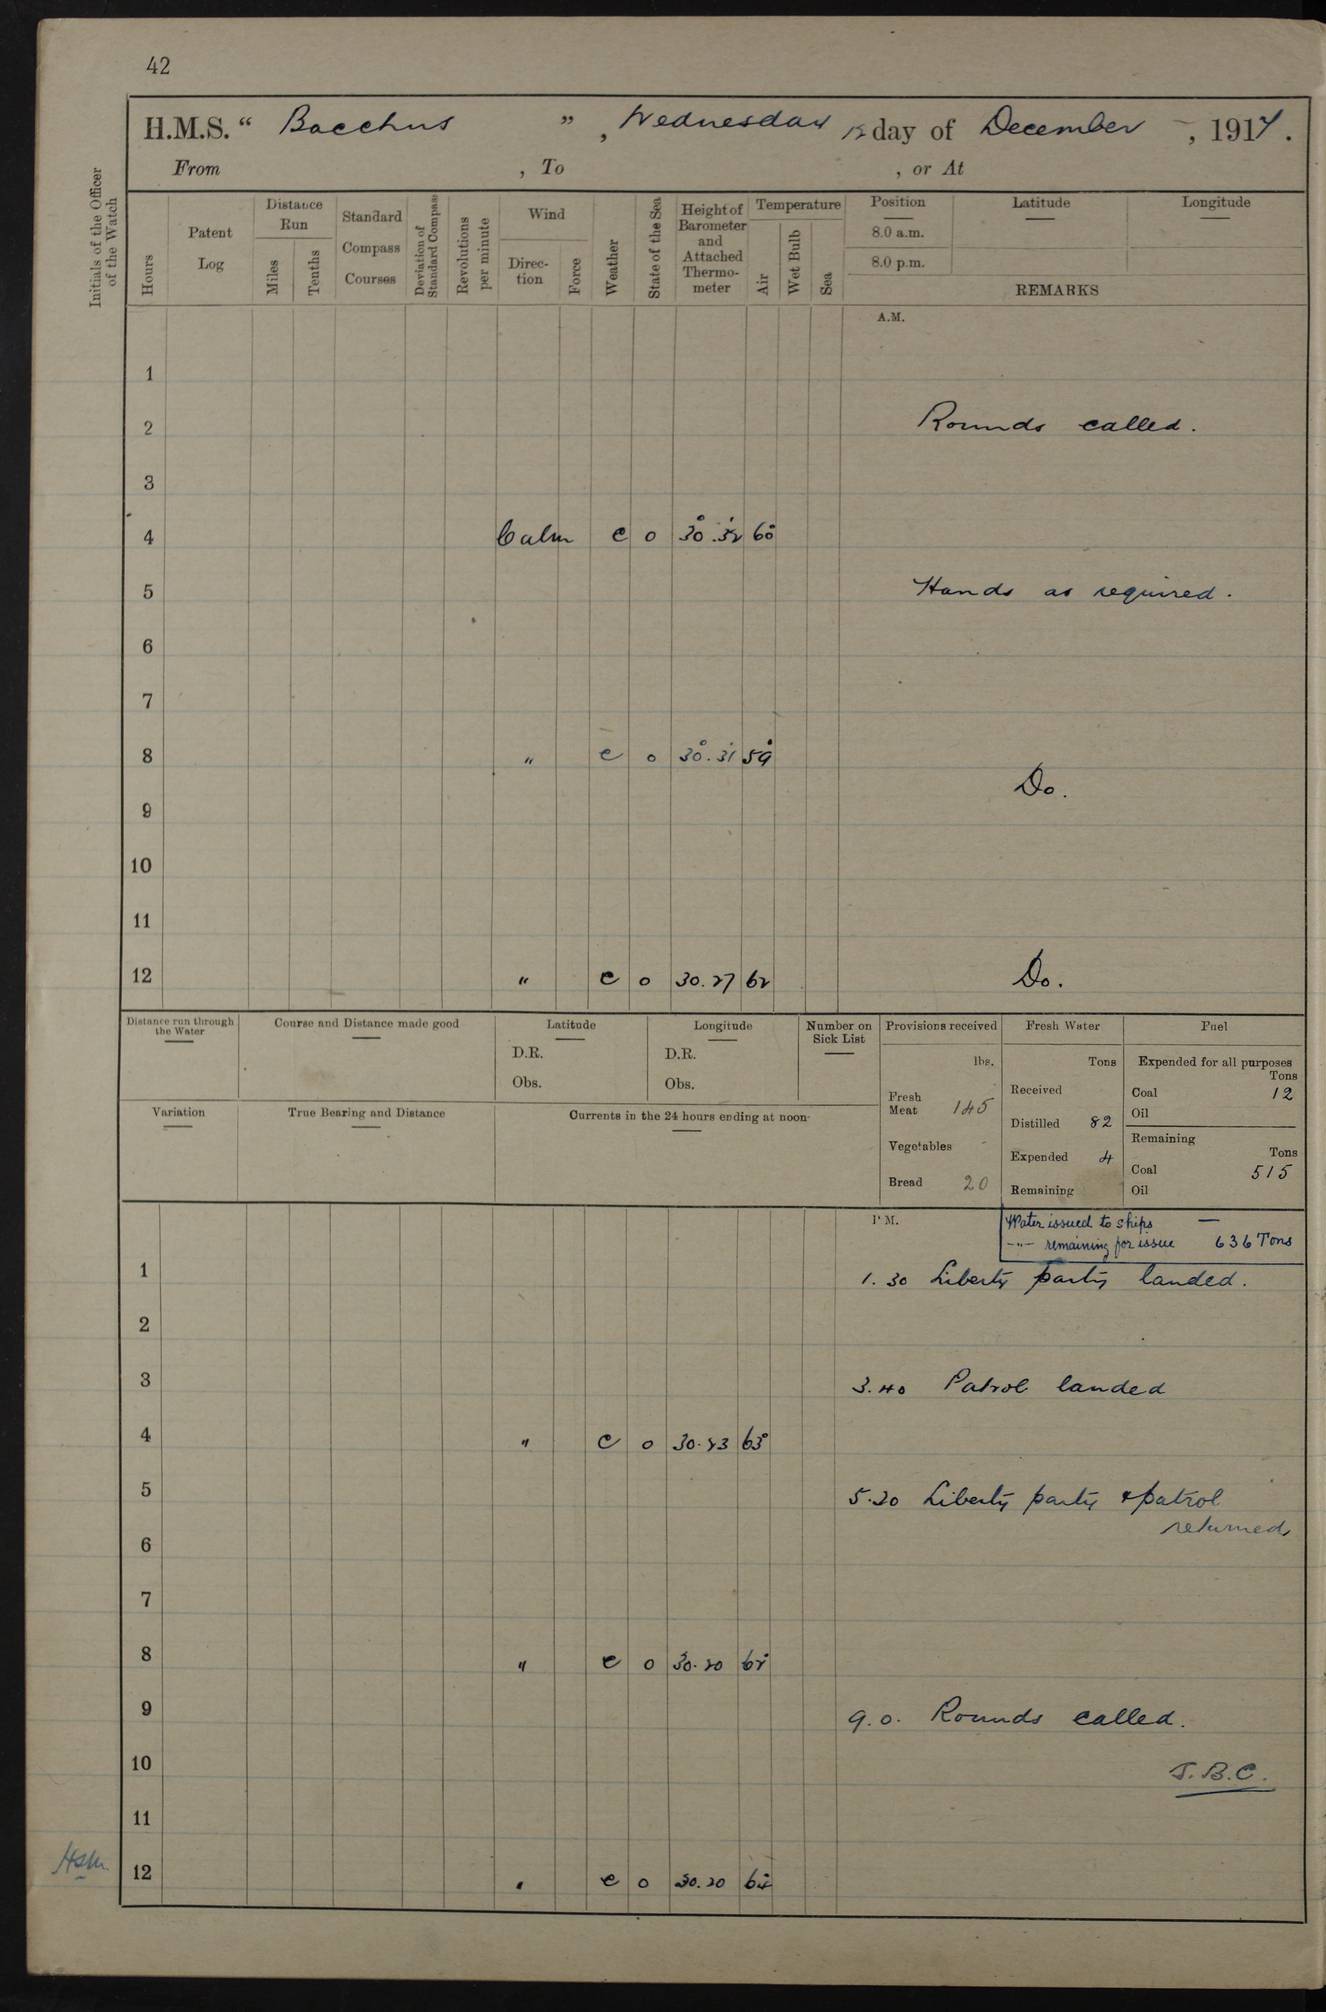 42
H.M.S. “ Bacchus ” , Wednesday 12 day of December , 1917 .
From , To , or At
Initials of the Officer of the Watch
Hours
Patent Log
Distance Run
Miles
Tenths
Standard Compass Courses
Deviation of Standard Compass
Revolutions per minute
Wind
Direction
Force
Weather
State of the Sea
Height of Barometer and Attached Thermometer
Temperature
Air
Wet Bulb
Sea
Position
8.0 a.m.
8.0 p.m.
Latitude
Longitude
REMARKS
A.M.
1
2 Rounds called.
3
4 Calm c o 30.32 60
5 Hands as required.
6
7
8 " c o 30.31 59
Do.
9
10
11
12 " c o 30.27 62 Do.
Distance run through the Water
Course and Distance made good
Latitude
D.R.
Obs.
Longitude
D.R.
Obs.
Number on Sick List
Provisions received
lbs.
Fresh Meat 145
Vegetables -
Bread 20
Fresh Water
Tons
Received
Distilled 82
Expended 4
Remaining
Fuel
Expended for all purposes
Tons
Coal 12
Oil
Remaining
Tons
Coal 515
Oil
Variation
True Bearing and Distance
Currents in the 24 hours ending at noon
P.M.
Water issued to ships —
-"- remaining for issue 636 Tons
1 1.30 Liberty party landed.
2
3 3.40 Patrol landed
4 " c o 30.23 63
5 5.20 Liberty party & patrol
returned
6
7
8 " c o 30.20 62
9 9.0. Rounds called.
10 J.B.C.
11
12 " c o 30.20 64